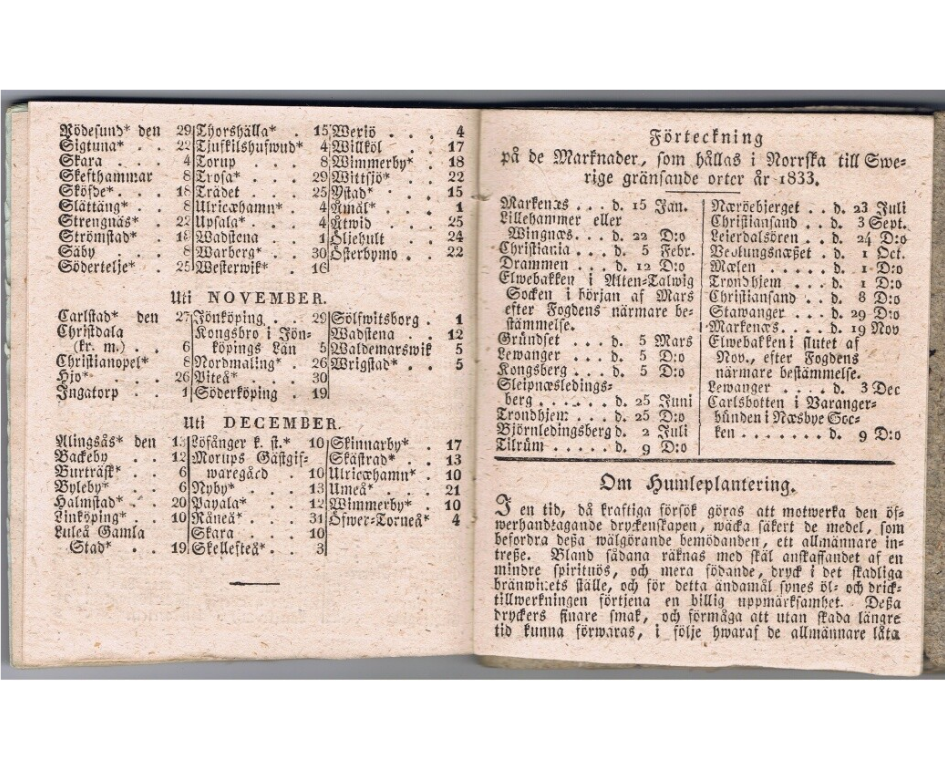 Rödesund* den 29
Sigtuna* . . 22
Skara . . . 4
Skefthammar 8
Sköfde* . . 18
Slättäng* . . 8
Strengnäs* . 22
Strömstad* . 18
Säby . . . 8
Södertelje* . 25
Thorshälla* . 15
Tjuskilshufwud* 4
Torup . . 8
Trosa* . . . 29
Trädet . . 25
Ulricæhamn* . 4
Upsala* . . 4
Wadstena . 1
Warberg* . 30
Westerwik* . 16
Weriö . . . 4
Willköl . . 17
Wimmerby* . 18
Wittsjö* . . 22
Ystad* . . 15
Åmål* . . 1
Åtwid . . 25
Öljehult . . 24
Österbymo . . 22
Uti NOVEMBER.
Carlstad* den 27
Christdala
(kr. m.) . . 6
Christianopel* 8
Hjo* . . . 26
Ingatorp . . 1
Jönköping . . 29
Kongsbro i Jön-
köpings Län 5
Nordmaling* . 26
Piteå* . . 30
Söderköping . 19
Sölfwitsborg . 1
Wadstena . . 12
Waldemarswik 5
Wrigstad* . . 5
Uti DECEMBER.
Alingsås* den 13
Backeby . . 12
Burträsk* . . 6
Byleby* . . 6
Halmstad* . 20
Linköping* . 10
Luleå Gamla
Stad* . . 19
Löfånger k. st.* 10
Morups Gästgif-
waregård 10
Nyby* . . . 13
Pajala* . . 12
Råneå* . . 31
Skara . . . 10
Skellefteå* . . 3
Skinnarby* . 17
Skästrad* . . 13
Ulricæhamn* . 10
Umeå* . . 21
Wimmerby* . 10
Öfwer-Torneå* 4
Förteckning
på de Marknader, som hållas i Norrska till Swe-
rige gränsande orter år 1833.
Markenæs . . d. 15 Jan.
Lillehammer eller
Wingnæs . . . d. 22 D:o
Christiania . . d. 5 Febr.
Drammen . . . d. 12 D:o
Elwebakken i Alten-Talwig
Socken i början af Mars
efter Fogdens närmare be-
stämmelse.
Gründset . . . d. 5 Mars
Lewanger . . d. 5 D:o
Kongsberg . . d. 5 D:o
Sleipnæsledings-
berg . . . . d. 25 Juni
Trondhjem . . d. 25 D:o
Björnledingsberg d. 2 Juli
Tilrüm . . . . d. 9 D:o
Næröebjerget . . d. 23 Juli
Christiansand . . d. 3 Sept.
Leierdalsören . . d. 24 D:o
Weblungsnæßet . d. 1 Oct.
Mælen . . . . d. 1 D:o
Trondhjem . . d. 1 D:o
Christiansand . . d. 8 D:o
Stawanger . . . d. 29 D:o
Markenæs . . . d. 19 Nov
Elwebakken i slutet af
Nov., efter Fogdens
närmare bestämmelse.
Lewanger . . . . d. 3 Dec
Carlsbotten i Varanger-
bunden i Næsbye Soc-
ken . . . . . . . d. 9 D:o
Om Humleplantering.
I en tid, då kraftiga försök göras att motwerka den öf-
werhandtagande dryckenskapen, wäcka säkert de medel, som
befordra deßa wälgörande bemödanden, ett allmännare in-
treße. Bland sådana räknas med skäl anskaffandet af en
mindre spirituös, och mera födande, dryck i det skadliga
bränwinets ställe, och för detta ändamål synes öl- och drick-
tillwerkningen förtjena en billig uppmärksamhet. Deßa
dryckers finare smak, och förmåga att utan skada längre
tid kunna förwaras, i följe hwaraf de allmännare låta